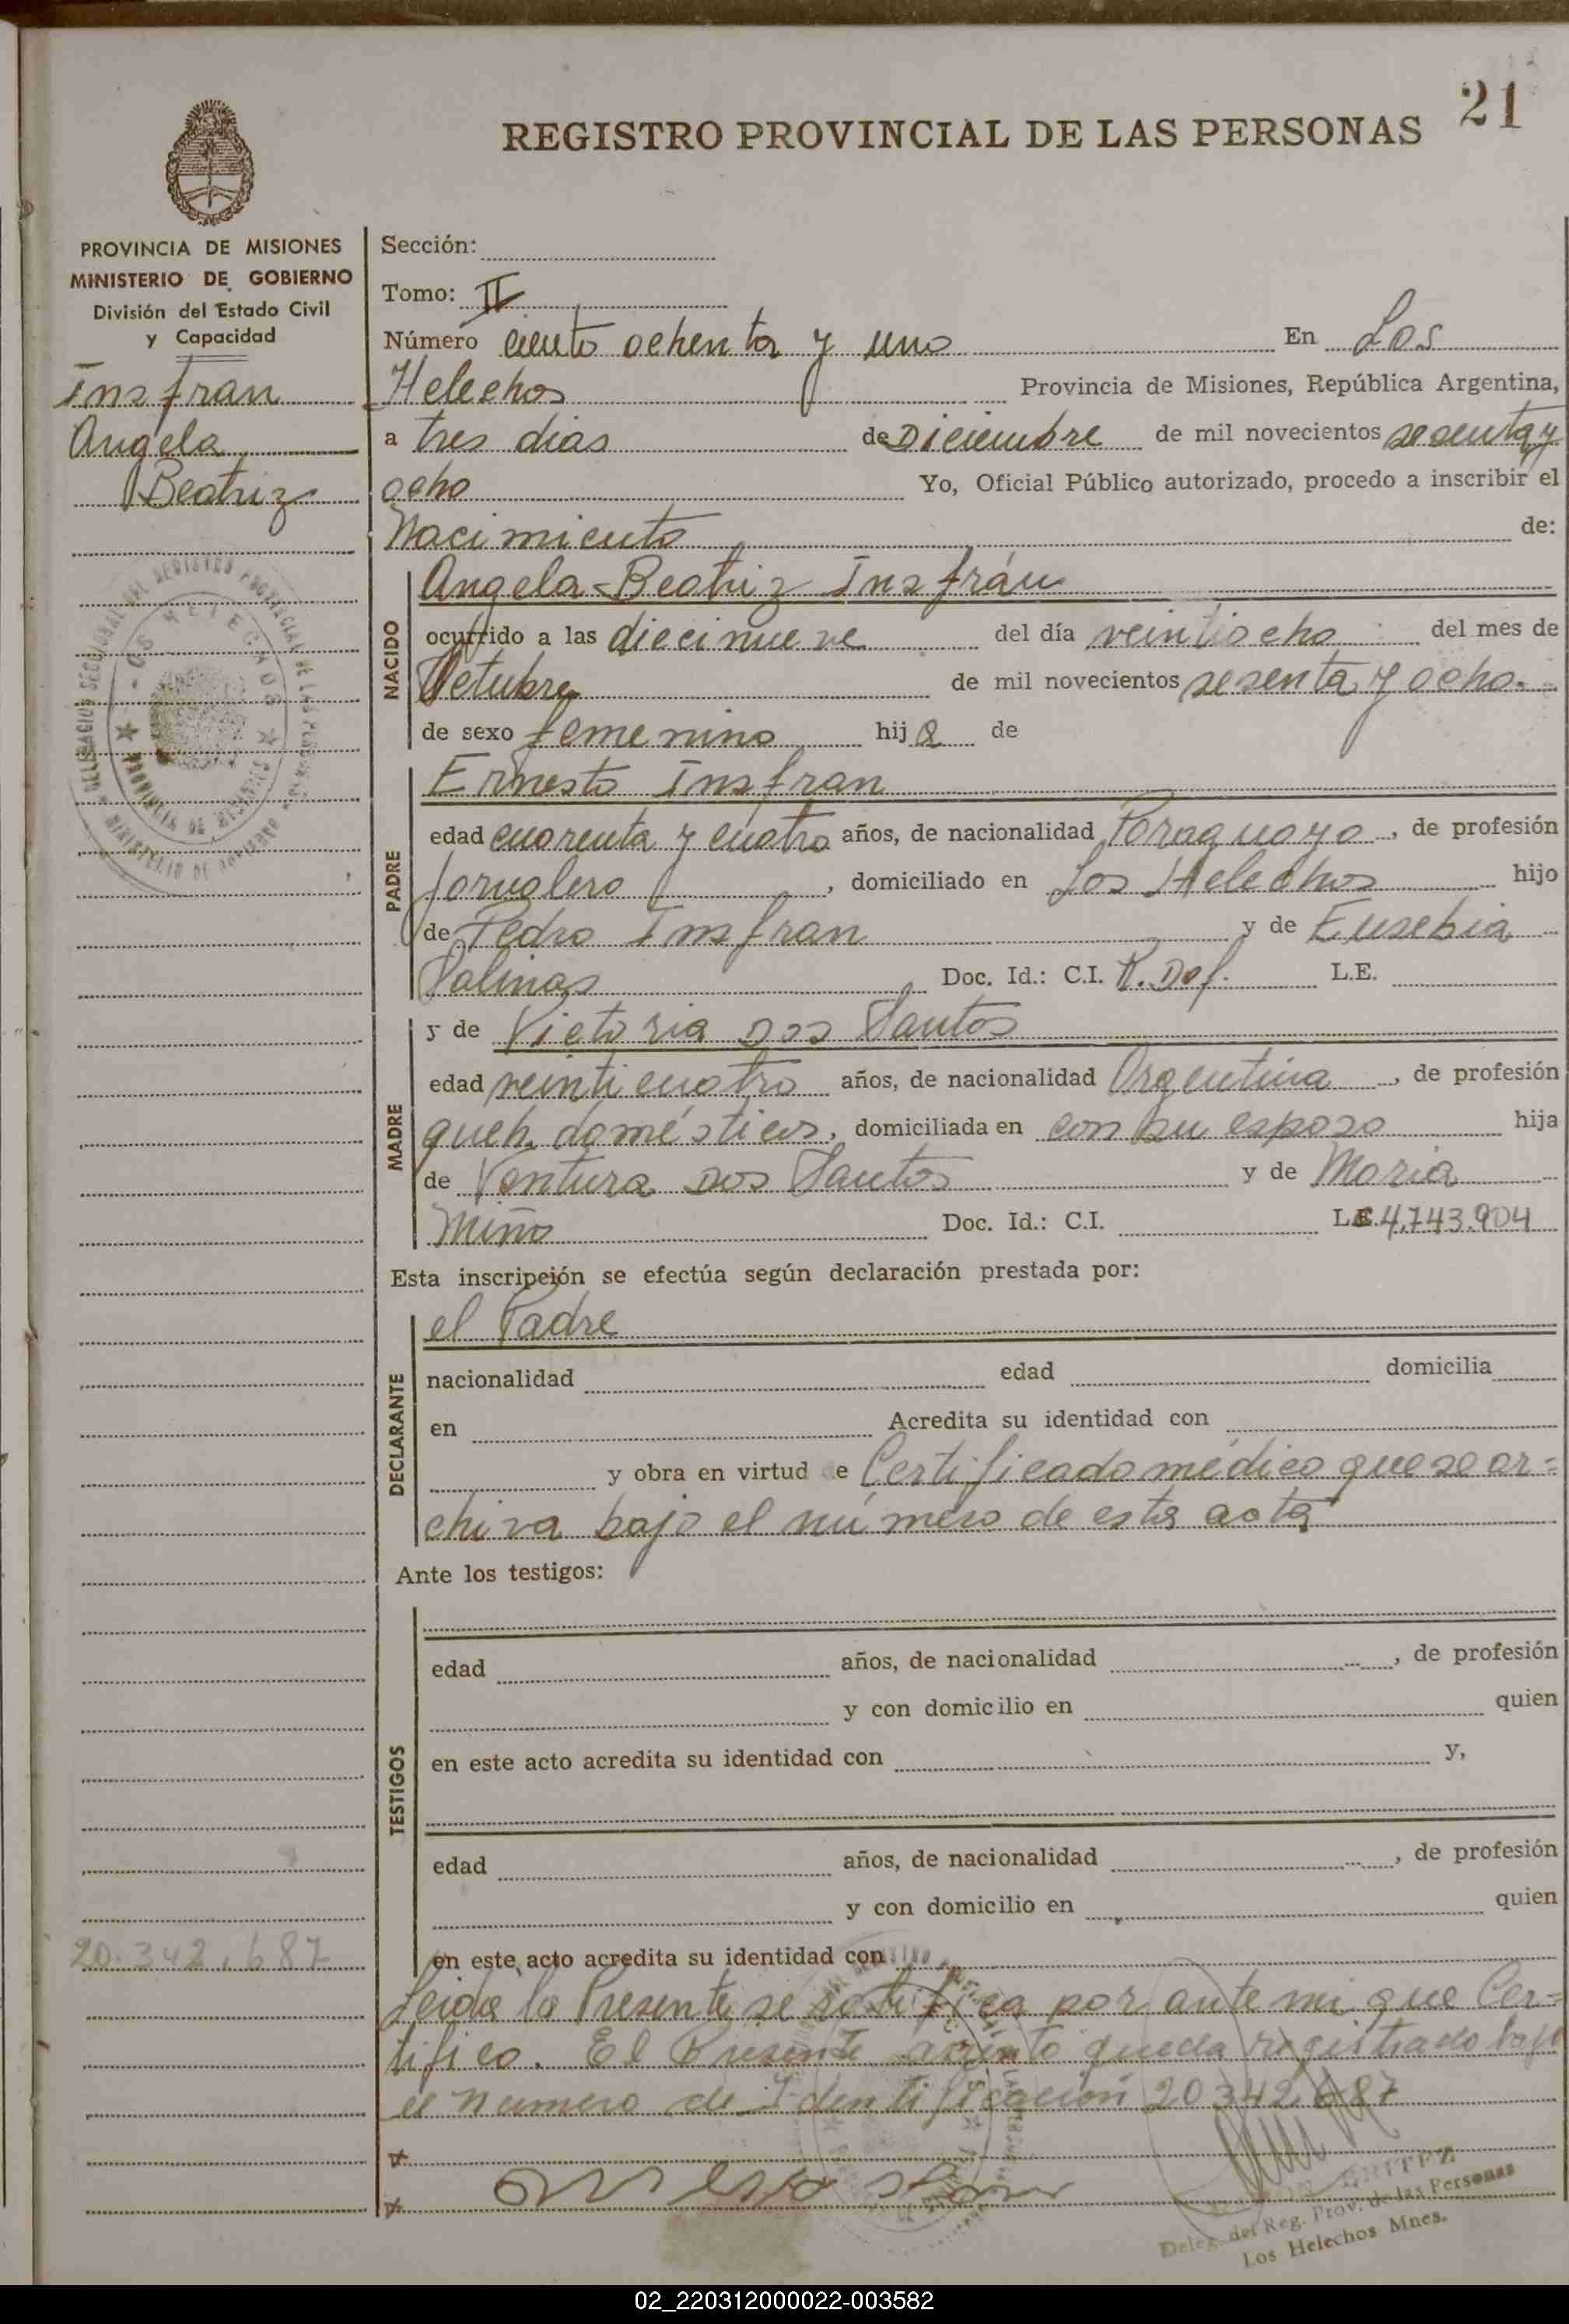 21
REGISTRO PROVINCIAL DE LAS PERSONAS
PROVINCIA DE MISIONES
MINISTERIO DE GOBIERNO
División del Estado Civil
y Capacidad
Insfran
Angela
Beatriz
Sección:
Tomo: II
Número ciento ochenta y uno En Los
Helechos Provincia de Misiones, República Argentina,
a tres dias de Diciembre de mil novecientos sesenta y
ocho Yo, Oficial Público autorizado, procedo a inscribir el
Nacimiento de:
NACIDO
Angela=Beatriz Insfrán
ocurrido a las diecinueve del día veintiocho del mes de
Octubre de mil novecientos sesenta y ocho.
de sexo femenino hija de
PADRE
Ernesto Insfran
edad cuarenta y cuatro años, de nacionalidad Paraguaya, de profesión
Jornalero, domiciliado en Los Helechos hijo
de Pedro Insfran y de Eusebia
Salinas Doc. Id.: C.I. R. Def. L.E.
MADRE
y de Victoria Dos Santos
edad veinticuatro años, de nacionalidad Argentina, de profesión
queh. domésticos, domiciliada en con su esposo hija
de Ventura Dos Santos y de Maria
Miño Doc. Id.: C.I. LC. 4.743.904
Esta inscripción se efectúa según declaración prestada por:
DECLARANTE
el Padre
nacionalidad edad domicilia
en Acredita su identidad con
y obra en virtud e Certificado médico que se ar=
chiva bajo el número de esta acta
Ante los testigos:
TESTIGOS
edad años, de nacionalidad , de profesión
y con domicilio en quien
en este acto acredita su identidad con y,
edad años, de nacionalidad , de profesión
y con domicilio en quien
en este acto acredita su identidad con
20.342.687
Leida la Presente se ratifica por ante mi que Cer=
tifico. El Presente asiento queda registrado bajo
el numero de Identificación 20342687
BRITEZ
Deleg. del Reg. Prov. de las Personas
Los Helechos Mnes.
02_220312000022-003582